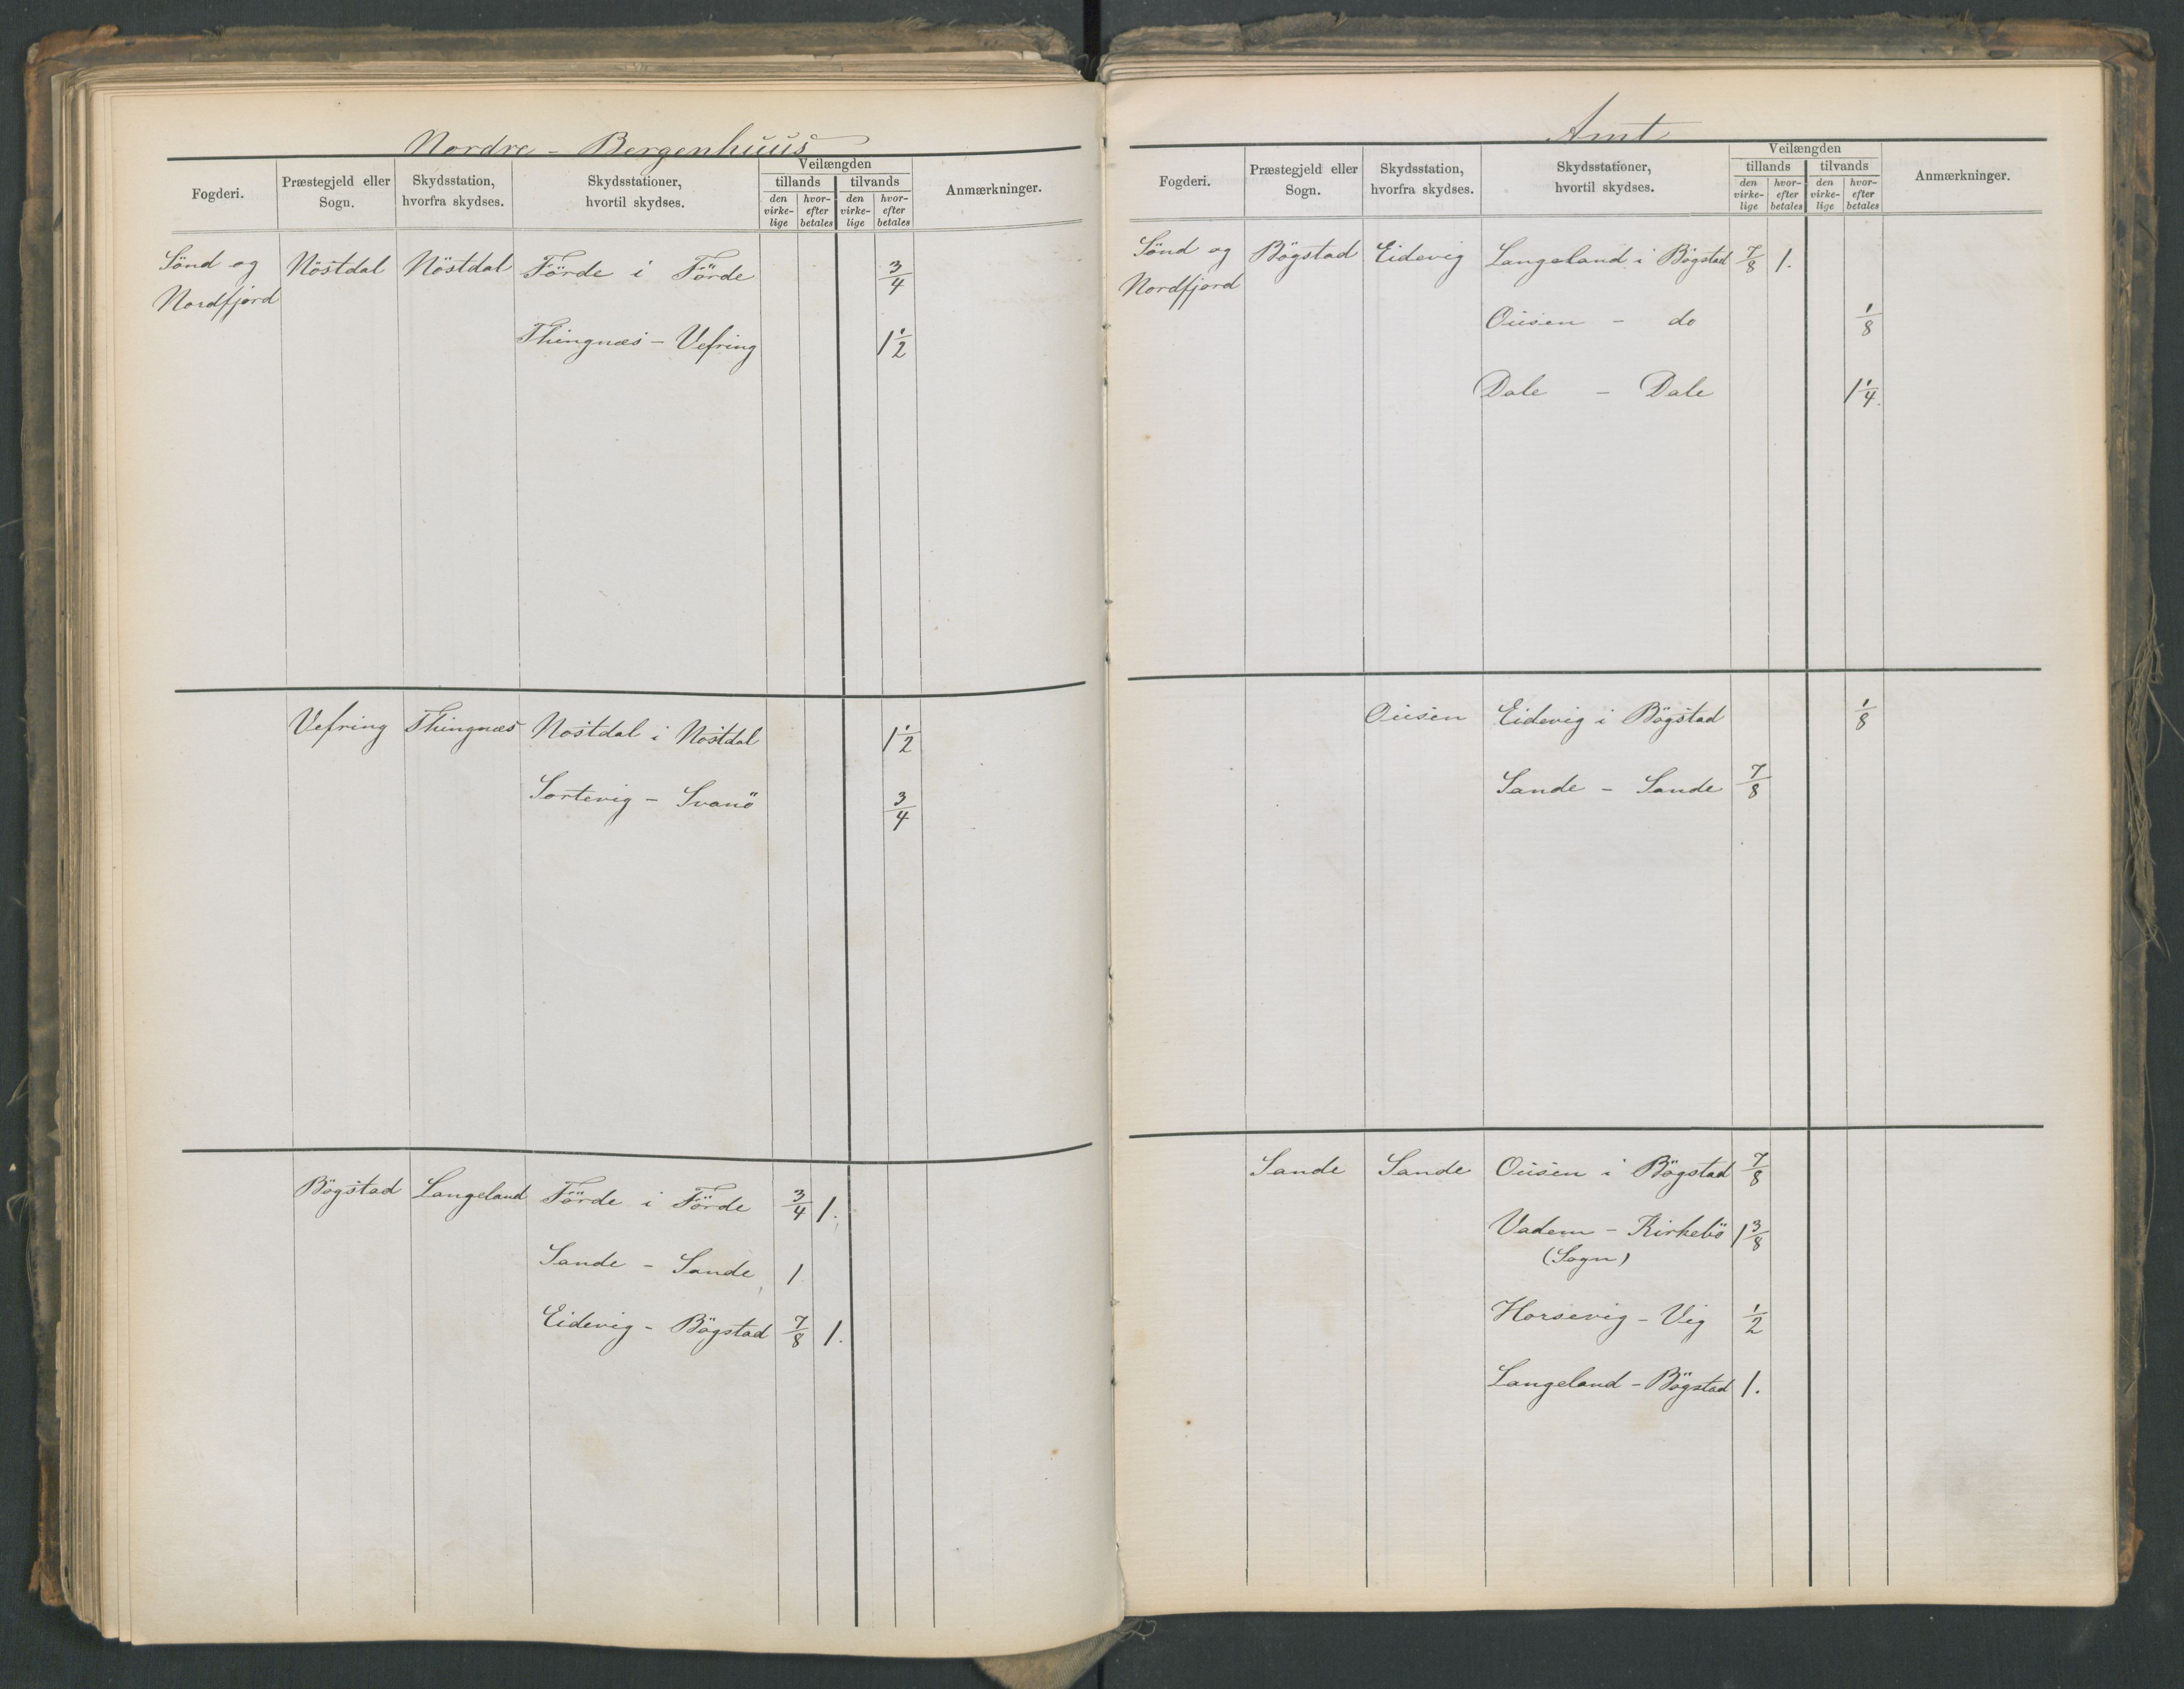 Nordre - Bergenhuus
Fogderi. Præstegjeld eller Sogn. Skydsstation, hvorfra skydses. Skydsstationer, hvortil skydses. Veilængden Anmærkninger.
tillands tilvands
den virkelige hvorefter betales den virkelige hvorefter betales
Sönd og Nöstdal Nöstdal Förde i Förde 3/4
Nordfjord
Thingnæs - Vefring 1 1/2
Vefring Thingnæs Nöstdal i Nöstdal 1 1/2
Sortevig - Svanö 3/4
Bögstad Langeland Förde i Förde 3/4 1.
Sande - Sande 1
Eidevig - Bögstad 7/8 1.
Amt
Fogderi. Præstegjeld eller Sogn. Skydsstation, hvorfra skydses. Skydsstationer, hvortil skydses. Veilængden Anmærkninger.
tillands tilvands
den virkelige hvorefter betales den virkelige hvorefter betales
Sönd og Bögstad Eidevig Langeland i Bögstad 7/8 1.
Nordfjord
Ousen - do 1/8
Dale - Dale 1 1/4.
Ousen Eidevig i Bögstad 1/8
Sande - Sande 7/8
Sande Sande Ousen i Bögstad 7/8
Vadem - Kirkebö 1 3/8
(Sogn)
Horsevig - Vig 1/2
Langeland - Bögstad 1.